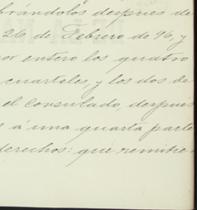 brándolos despues de
26 de Febrero de 96, y
por entero los quatro
cuarteles, y los dos de
el Consulado, despues
s á una quarta parte
derechos: que remitire